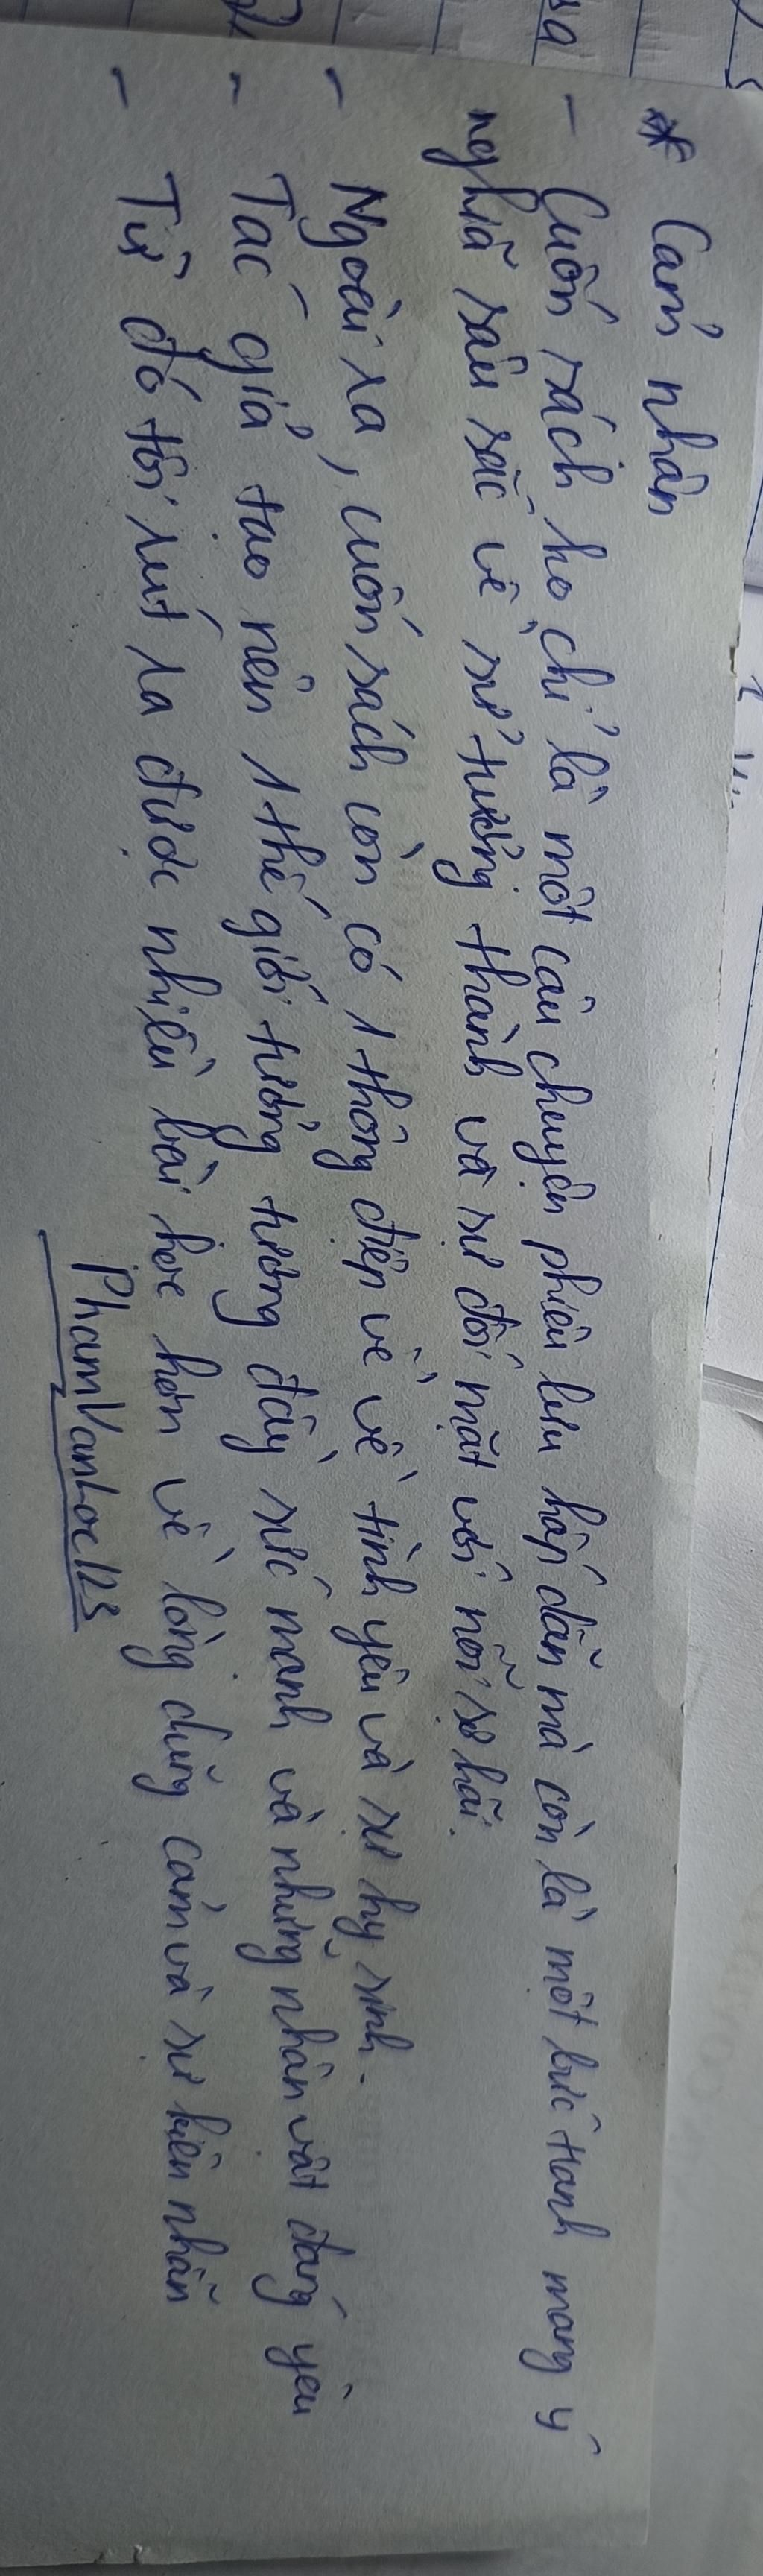 * Cảm nhận
- Cuốn sách ho chỉ là một câu chuyện phiêu lưu hấp dẫn mà còn là một bức tranh mang ý
nghĩa sâu sắc về sự trưởng thành và sự đối mặt với nỗi sợ hãi.
- Ngoài ra, cuốn sách còn có 1 thông điệp về về tình yêu và sự hy sinh.
- Tác giả tạo nên 1 thế giới tưởng tượng đầy sức mạnh và những nhân vật đáng yêu
- Từ đó tôi rút ra được nhiều bài học hơn về lòng dũng cảm và sự kiên nhẫn
PhamVanLoc123